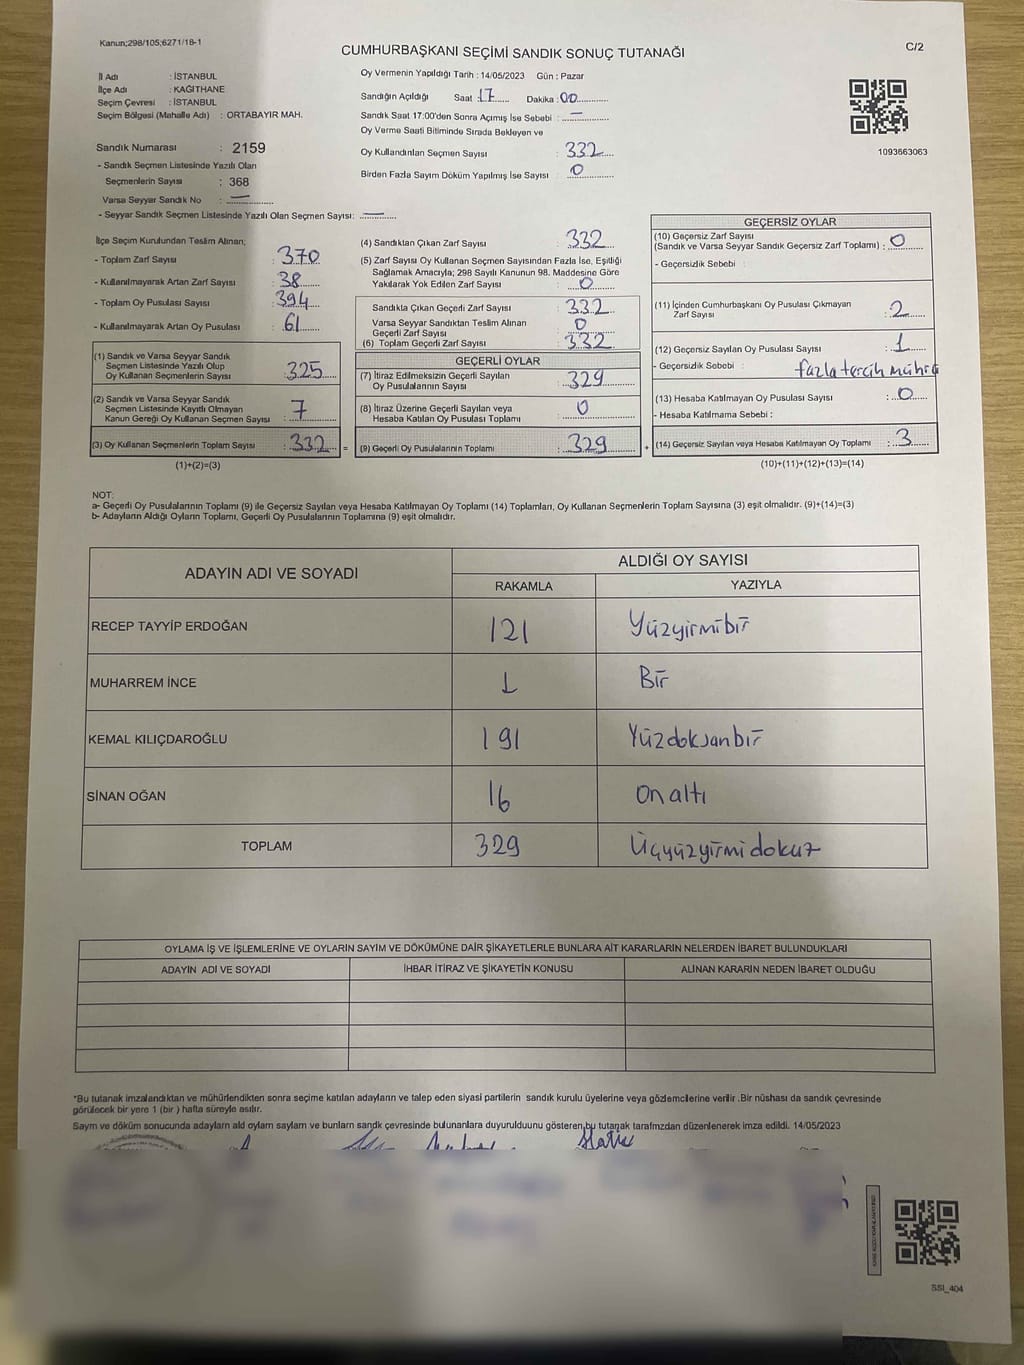 Kanun;298/105;6271/18-1
CUMHURBAŞKANI SEÇİMİ SANDIK SONUÇ TUTANAĞI
C/2
İl Adı : İSTANBUL
İlçe Adı : KAĞITHANE
Seçim Çevresi : İSTANBUL
Seçim Bölgesi (Mahalle Adı) : ORTABAYIR MAH.
Sandık Numarası : 2159
- Sandık Seçmen Listesinde Yazılı Olan
Seçmenlerin Sayısı : 368
Varsa Seyyar Sandık No : —
- Seyyar Sandık Seçmen Listesinde Yazılı Olan Seçmen Sayısı: —
Oy Vermenin Yapıldığı Tarih : 14/05/2023 Gün : Pazar
Sandığın Açıldığı Saat : 17 Dakika : 00
Sandık Saat 17:00'den Sonra Açımış İse Sebebi : —
Oy Verme Saati Bitiminde Sırada Bekleyen ve
Oy Kullandırılan Seçmen Sayısı : 332
Birden Fazla Sayım Döküm Yapılmış İse Sayısı : 0
1093663063
İlçe Seçim Kurulundan Teslim Alınan;
- Toplam Zarf Sayısı : 370
- Kullanılmayarak Artan Zarf Sayısı : 38
- Toplam Oy Pusulası Sayısı : 394
- Kullanılmayarak Artan Oy Pusulası : 61
(1) Sandık ve Varsa Seyyar Sandık
Seçmen Listesinde Yazılı Olup
Oy Kullanan Seçmenlerin Sayısı : 325
(2) Sandık ve Varsa Seyyar Sandık
Seçmen Listesinde Kayıtlı Olmayan
Kanun Gereği Oy Kullanan Seçmen Sayısı : 7
(3) Oy Kullanan Seçmenlerin Toplam Sayısı : 332 =
(1)+(2)=(3)
(4) Sandıktan Çıkan Zarf Sayısı : 332
(5) Zarf Sayısı Oy Kullanan Seçmen Sayısından Fazla İse, Eşitliği
Sağlamak Amacıyla; 298 Sayılı Kanunun 98. Maddesine Göre
Yakılarak Yok Edilen Zarf Sayısı : 0
Sandıkta Çıkan Geçerli Zarf Sayısı : 332
Varsa Seyyar Sandıktan Teslim Alınan
Geçerli Zarf Sayısı : 0
(6) Toplam Geçerli Zarf Sayısı : 332
GEÇERLİ OYLAR
(7) İtiraz Edilmeksizin Geçerli Sayılan
Oy Pusulalarının Sayısı : 329
(8) İtiraz Üzerine Geçerli Sayılan veya
Hesaba Katılan Oy Pusulası Toplamı : 0
(9) Geçerli Oy Pusulalarının Toplamı : 329 +
GEÇERSİZ OYLAR
(10) Geçersiz Zarf Sayısı
(Sandık ve Varsa Seyyar Sandık Geçersiz Zarf Toplamı) : 0
- Geçersizlik Sebebi :
(11) İçinden Cumhurbaşkanı Oy Pusulası Çıkmayan
Zarf Sayısı : 2
(12) Geçersiz Sayılan Oy Pusulası Sayısı : 1
- Geçersizlik Sebebi : fazla tercih mührü
(13) Hesaba Katılmayan Oy Pusulası Sayısı : 0
- Hesaba Katılmama Sebebi :
(14) Geçersiz Sayılan veya Hesaba Katılmayan Oy Toplamı : 3
(10)+(11)+(12)+(13)=(14)
NOT:
a- Geçerli Oy Pusulalarının Toplamı (9) ile Geçersiz Sayılan veya Hesaba Katılmayan Oy Toplamı (14) Toplamları, Oy Kullanan Seçmenlerin Toplam Sayısına (3) eşit olmalıdır. (9)+(14)=(3)
b- Adayların Aldığı Oyların Toplamı, Geçerli Oy Pusulalarının Toplamına (9) eşit olmalıdır.
ADAYIN ADI VE SOYADI
ALDIĞI OY SAYISI
RAKAMLA YAZIYLA
RECEP TAYYİP ERDOĞAN 121 Yüzyirmibir
MUHARREM İNCE 1 Bir
KEMAL KILIÇDAROĞLU 191 Yüzdoksanbir
SİNAN OĞAN 16 onaltı
TOPLAM 329 Üçyüzyirmidokuz
OYLAMA İŞ VE İŞLEMLERİNE VE OYLARIN SAYIM VE DÖKÜMÜNE DAİR ŞİKAYETLERLE BUNLARA AİT KARARLARIN NELERDEN İBARET BULUNDUKLARI
ADAYIN ADI VE SOYADI İHBAR İTİRAZ VE ŞİKAYETİN KONUSU ALINAN KARARIN NEDEN İBARET OLDUĞU
*Bu tutanak imzalandıktan ve mühürlendikten sonra seçime katılan adayların ve talep eden siyasi partilerin sandık kurulu üyelerine veya gözlemcilerine verilir .Bir nüshası da sandık çevresinde
görülecek bir yere 1 (bir ) hafta süreyle asılır.
Sayım ve döküm sonucunda adayların aldı oyların sayıları ve bunların sandk çevresinde bulunanlara duyurulduunu gösteren bu tutanak tarafmzdan düzenlenerek imza edildi. 14/05/2023
SSI_404